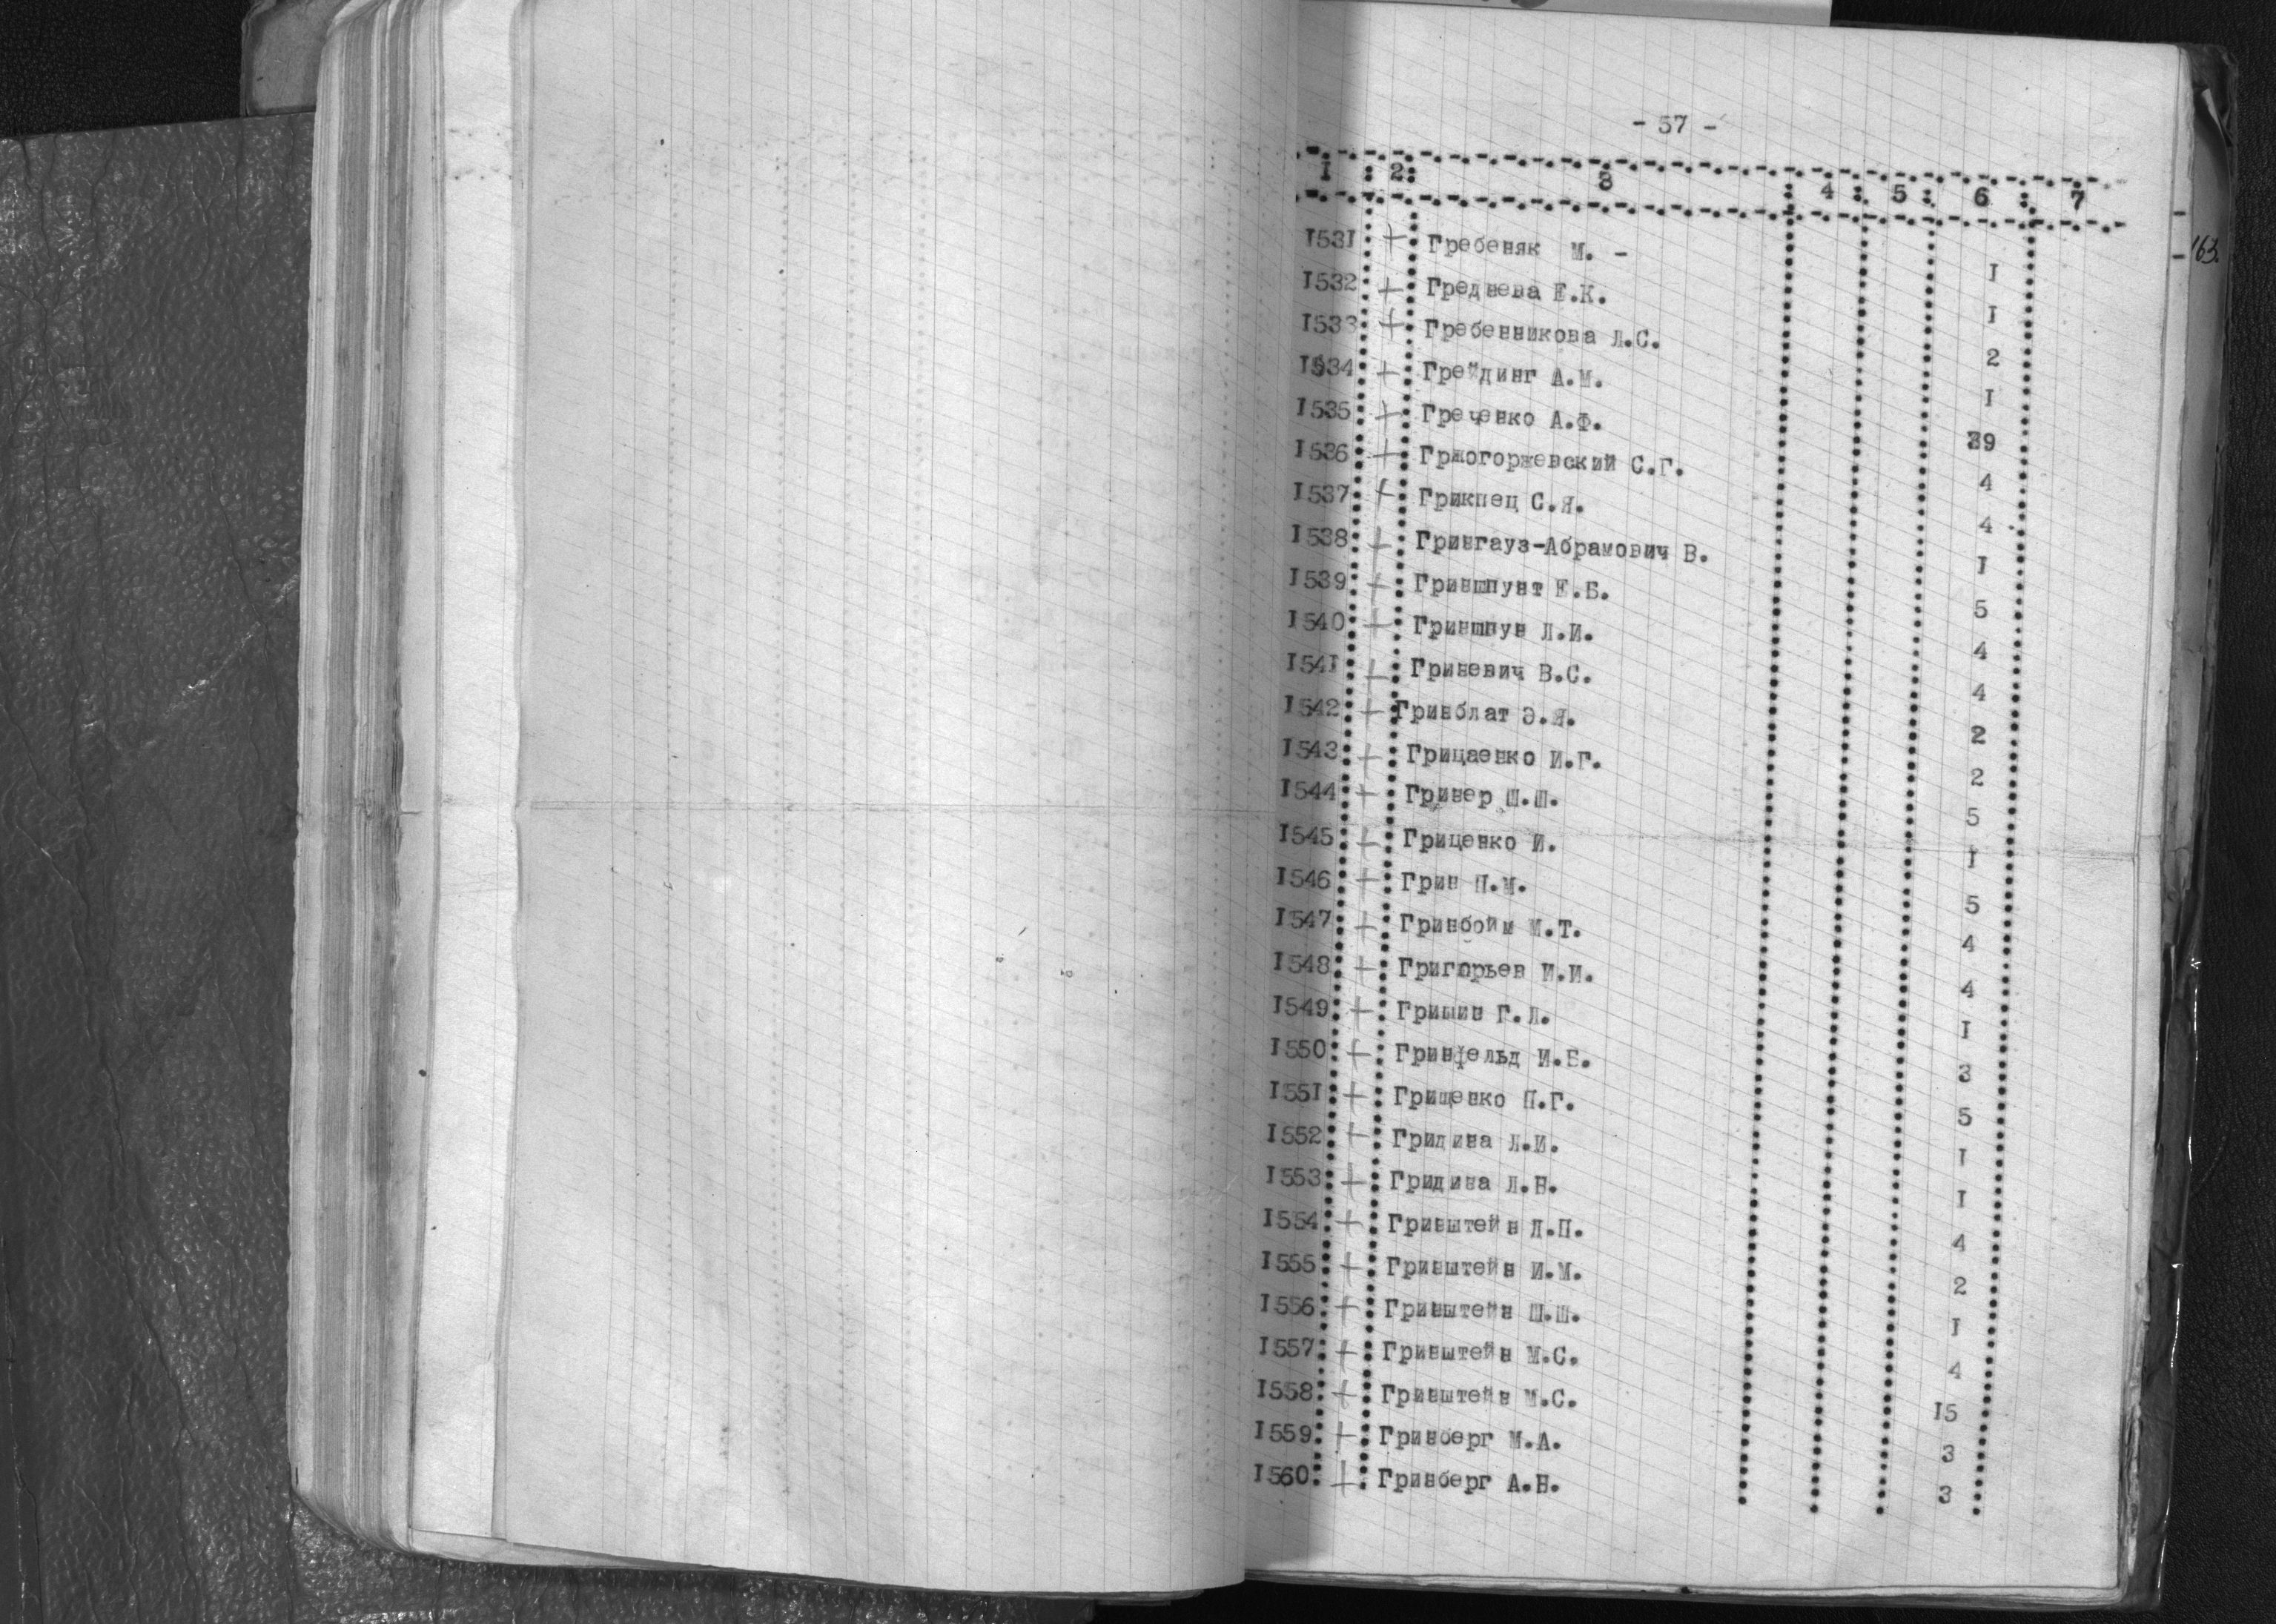 - 57 -
I : 2: 3 : 4 : 5 : 6 : 7
163.
I53I + Гребеняк М. - I
I532 + Греднева Е.К. I
I533 + Гребенникова Л.С. 2
I534 + Грейдинг А.М. I
I535 + Греченко А.Ф. 39
I536 + Гржогоржевский С.Г. 4
I537 + Грикпец С.Я. 4
I538 + Грингауз-Абрамович В. I
I539 + Гриншпунт Е.Б. 5
I540 + Гриншпун Л.И. 4
I54I + Гриневич В.С. 4
I542 + Гринблат Э.Я. 2
I543 + Грицаенко И.Г. 2
I544 + Гринер Ш.Ш. 5
I545 + Гриценко И. I
I546 + Грин П.М. 5
I547 + Гринбойм М.Т. 4
I548 + Григорьев И.И. 4
I549 + Гришин Г.Л. I
I550 + Гринфельд И.Б. 3
I55I + Грищенко П.Г. 5
I552 + Гридина Л.И. I
I553 + Гридина Л.Н. I
I554 + Гринштейн Д.П. 4
I555 + Гринштейн И.М. 2
I556 + Гринштейн Ш.Ш. I
I557 + Гринштейн М.С. 4
I558 + Гринштейн М.С. I5
I559 + Гринберг М.А. 3
I560 + Гринберг А.Н. 3